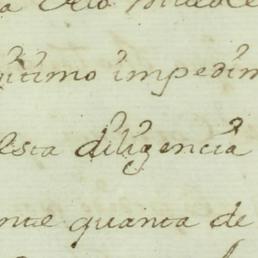 itimo impedim
esta diligencia
nte quanta de